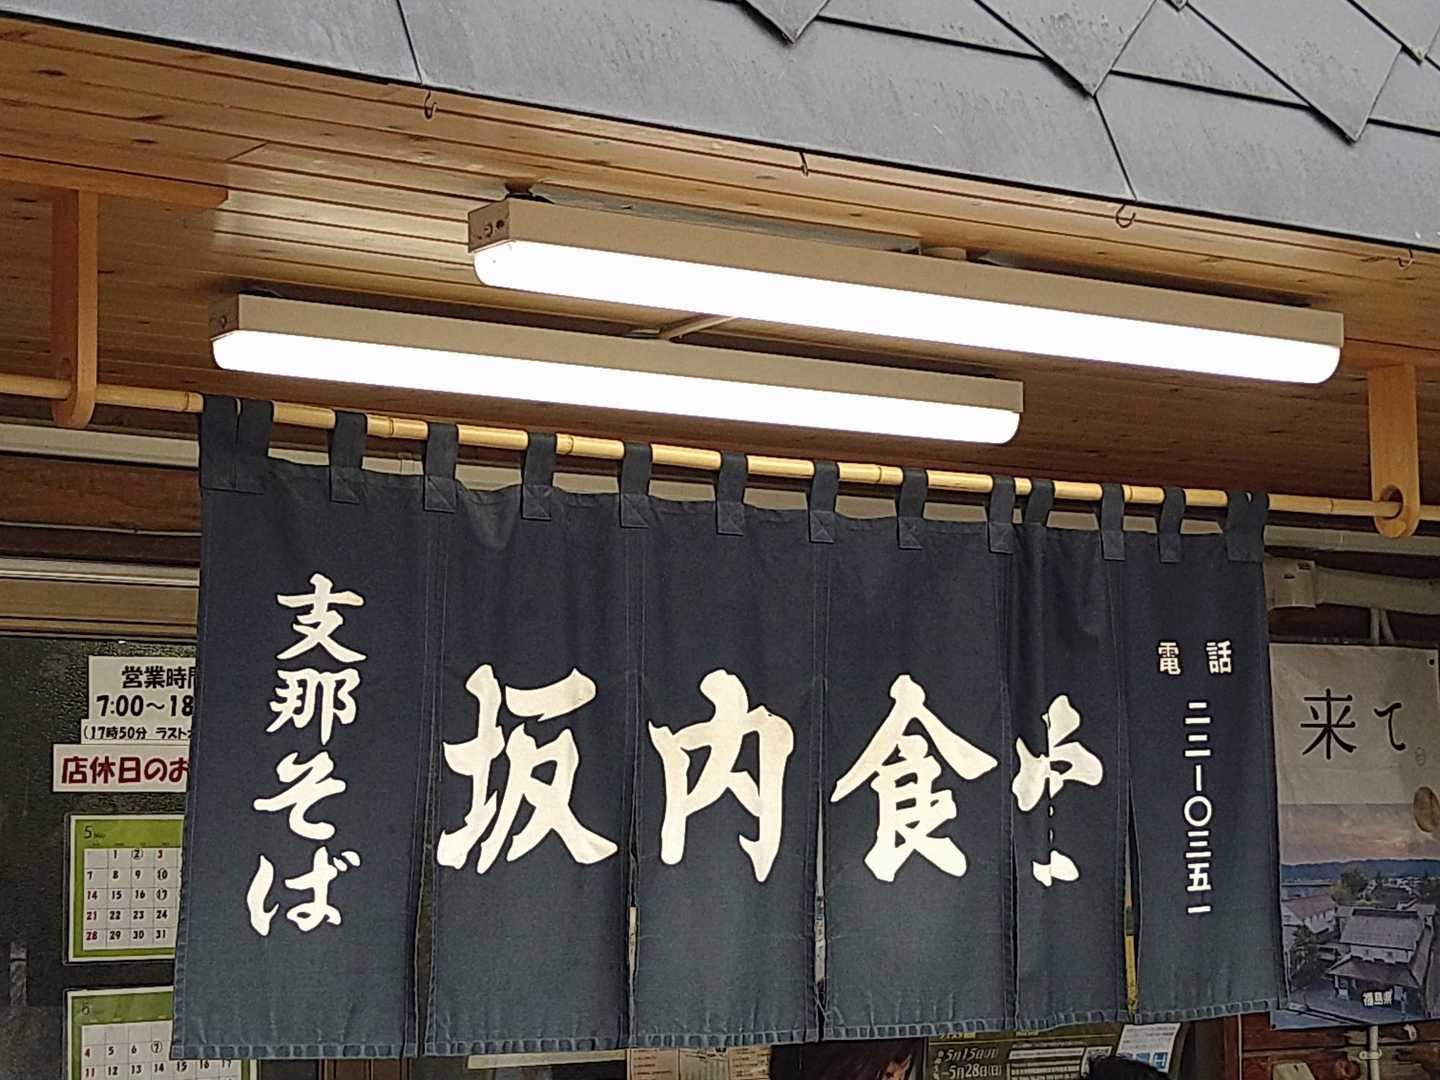 支那そば
坂内食堂
電話
二二ー〇三五一
営業時間
7:00～18
(17時50分 ラスト
店休日のお
来て
5
1 2 3
7 8 9 10
14 15 16 17
21 22 23 24
28 29 30 31
6
4 5 6 7
11 12 13 14 15 16 17
福島県
5月15日(月)
～5月28日(日)